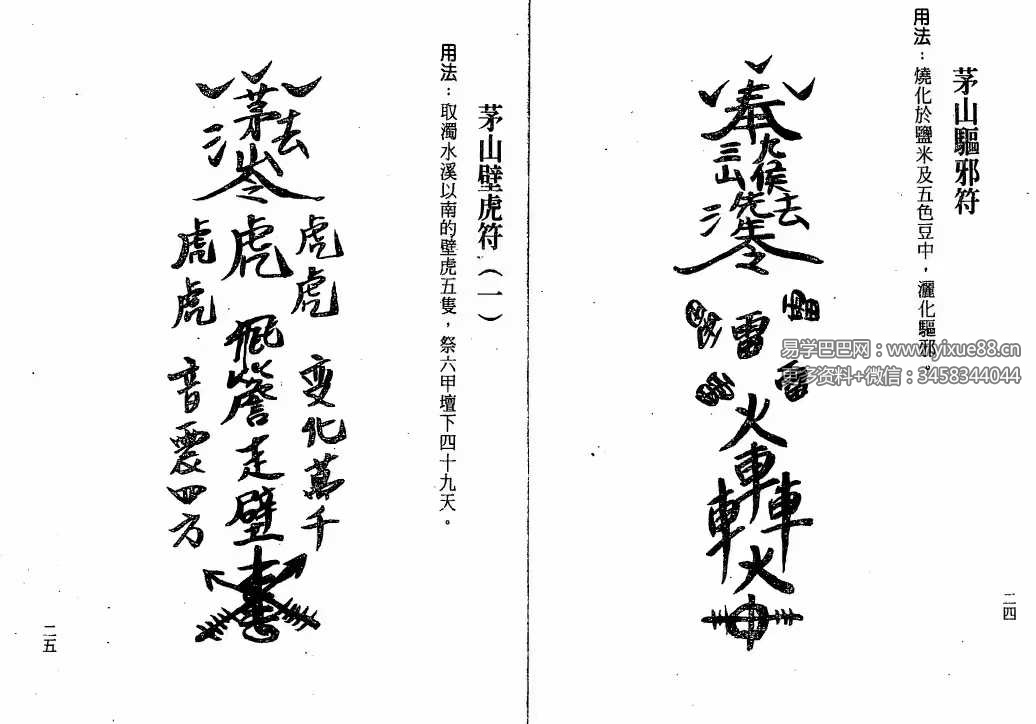 茅山驅邪符
用法：燒化於鹽米及五色豆中，灑化驅邪。
奉
九侯
三山
先生
去
雷
雷
雷
火
車
車
車
火
二四
茅山壁虎符（一）
用法：取濁水溪以南的壁虎五隻，祭六甲壇下四十九天。
茅山
去
令
虎虎
虎
虎虎
变化萬千
飛簷走壁
音震四方
二五
易学巴巴网：www.yixue88.cn
更多资料+微信：3458344044